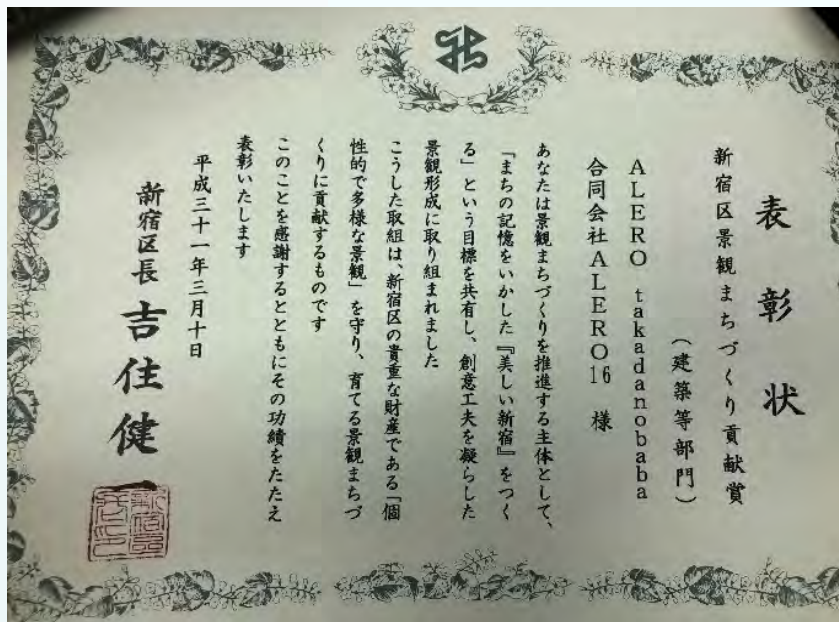 表彰状
新宿区景観まちづくり貢献賞
（建築等部門）
ALERO takadanobaba
合同会社ALERO16 様
あなたは景観まちづくりを推進する主体として、
「まちの記憶をいかした『美しい新宿』をつく
る」という目標を共有し、創意工夫を凝らした
景観形成に取り組まれました
こうした取組は、新宿区の貴重な財産である「個
性的で多様な景観」を守り、育てる景観まちづ
くりに貢献するものです
このことを感謝するとともにその功績をたたえ
表彰いたします
平成三十一年三月十日
新宿区長 吉住健一
新宿区長之印